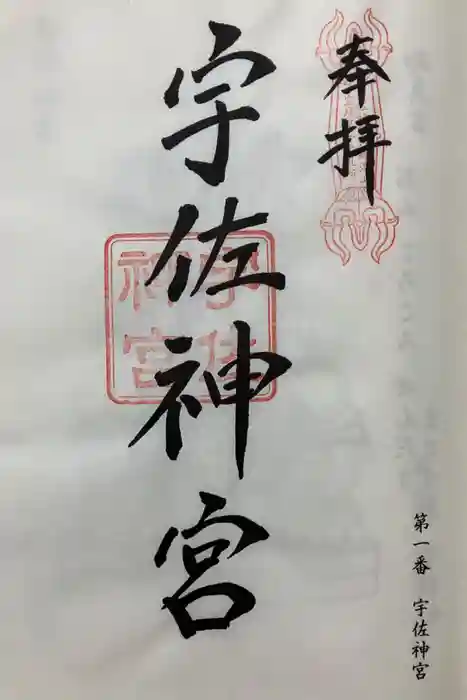 奉拝
宇佐神宮
宇佐
神宮
第一番 宇佐神宮